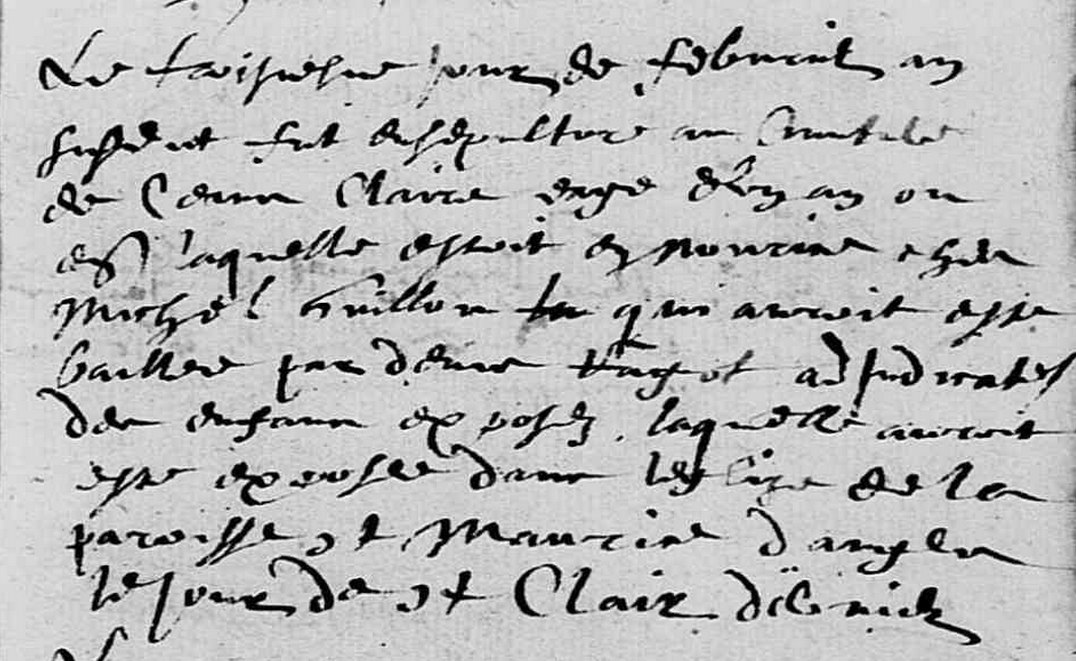 Le troisiesme jour de febvrier an
susdict fut ensepulturé au
de Claire eage d'un an ou
laquelle estoit en nourice ches
Michel Guillon qui avoit esté
baillee par denis adjudicates
des enfans exposez laquelle avoit
esté exposee dans leglize de la
paroisse st Maurice d'angles
le jour de st Clair